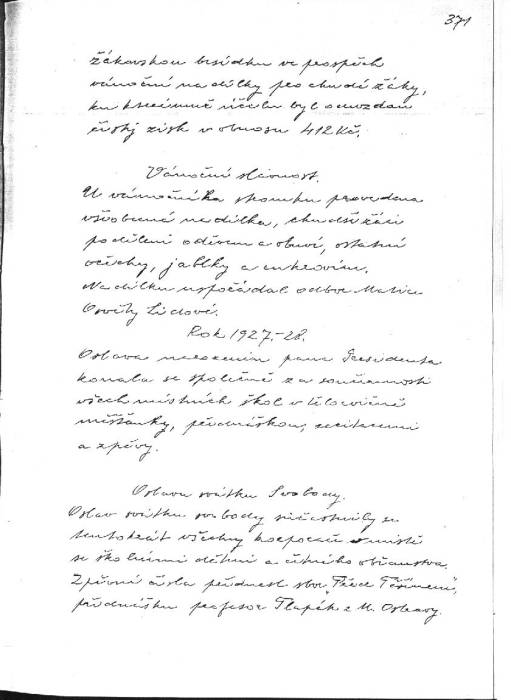 371
žákovskou besídku ve prospěch
vánoční nadílky pro chudé žáky,
ku kterémuž účelu byl odevzdán
čistý zisk v obnosu 412 Kč.
Vánoční slavnost.
U vánočního stromku provedena
všeobecná nadílka, chudší žáci
poděleni oděvem a obuví, ostatní
ořechy, jablky a cukrovím.
Nadílku uspořádal odbor Matice
Osvěty Lidové.
Rok 1927.-28.
Oslava narozenin pana Presidenta
konala se společně za součinnosti
všech místních škol v tělocvičně
měšťanky, přednáškou, recitacemi
a zpěvy.
Oslava svátku Svobody.
Oslav svátku svobody súčastnily se
tentokrát všechny korporace v místě
se školními dětmi a četného občanstva.
Zpěvní čísla přednesl sbor
přednášku profesor Tlapák z M. Ostravy.